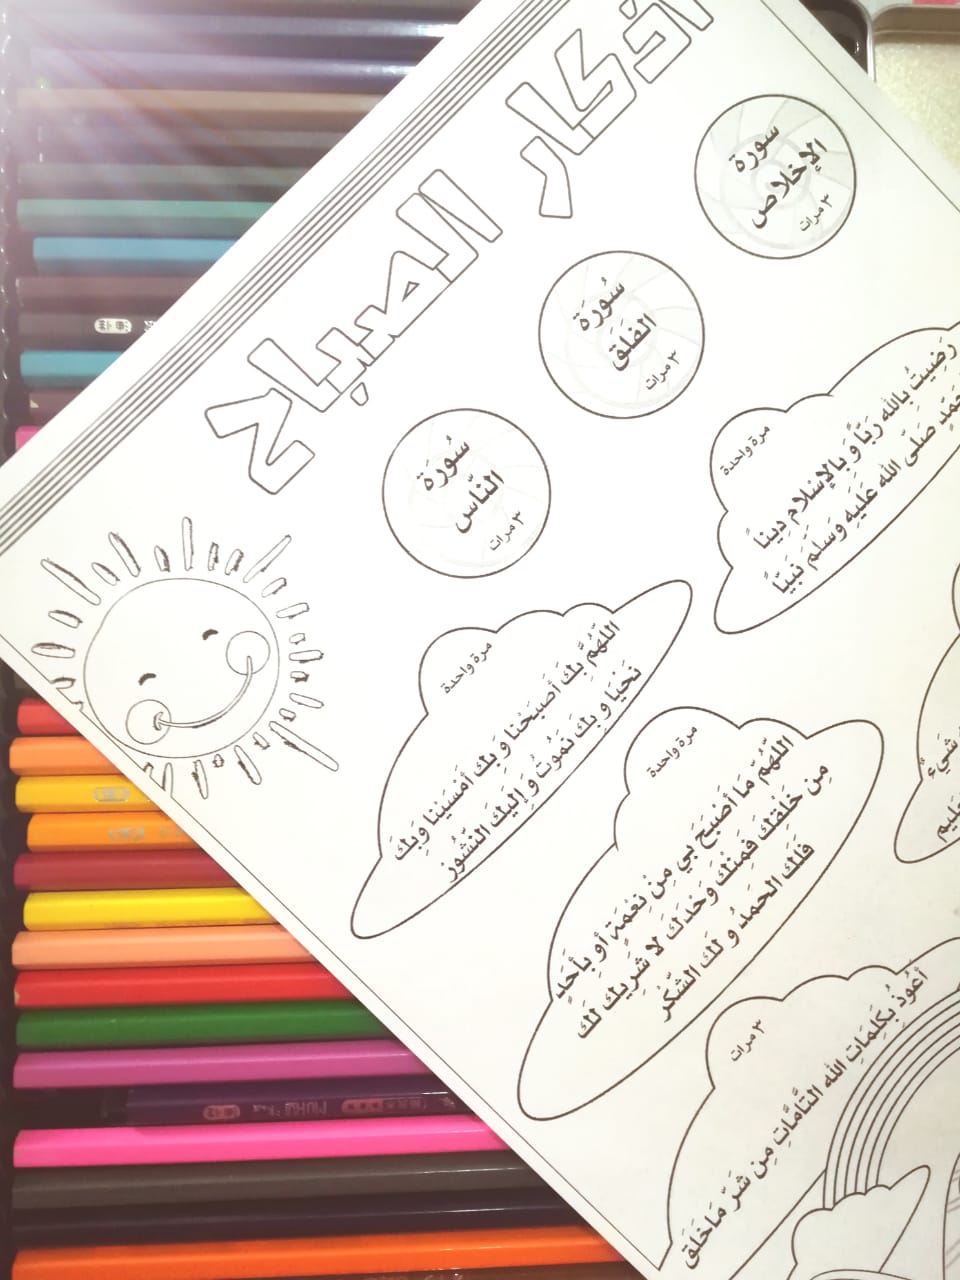 أذكار الصباح
سورة
الإخلاص
٣ مرات
سُورَة
الفَلَق
٣ مرات
سُورَة
النّاس
٣ مرات
مرة واحدة
رَضِيتُ بِالله رَبّاً وَ بِالإسْلام دِيناً
صَلّى الله عَلَيهِ وَسَلّم نَبيّاً
مرة واحدة
اللّهُمَّ بِكَ أَصبَحْنا وَ بِكَ أَمْسَيْنا وَ بِكَ
نَحْيَا وَ بِكَ نَمُوتُ وَ إِليكَ النّشُورْ
مرة واحدة
اللّهُمّ مَا أَصْبَحَ بي مِنْ نِعْمَة أو بِأحَدٍ
مِن خَلْقكَ فَمِنْكَ وَحْدَكَ لا شَرِيك لَكَ
فَلَكَ الحَمدُ و لَكَ الشّكْرْ
شَيءٌ
٣ مرات
أعُوذُ بكَلِمَاتِ الله التّامَّاتِ مِن شَرّ مَا خَلَق